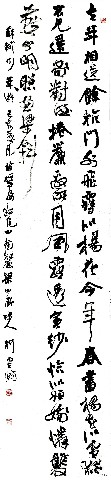 去年相送餘杭门外飛雪似楊花今年春盡楊花似雪猶
不見還家對酒捲簾邀明月風露透窗紗恰似姮娥憐雙
燕分明照畫梁斜
蘇軾少年游